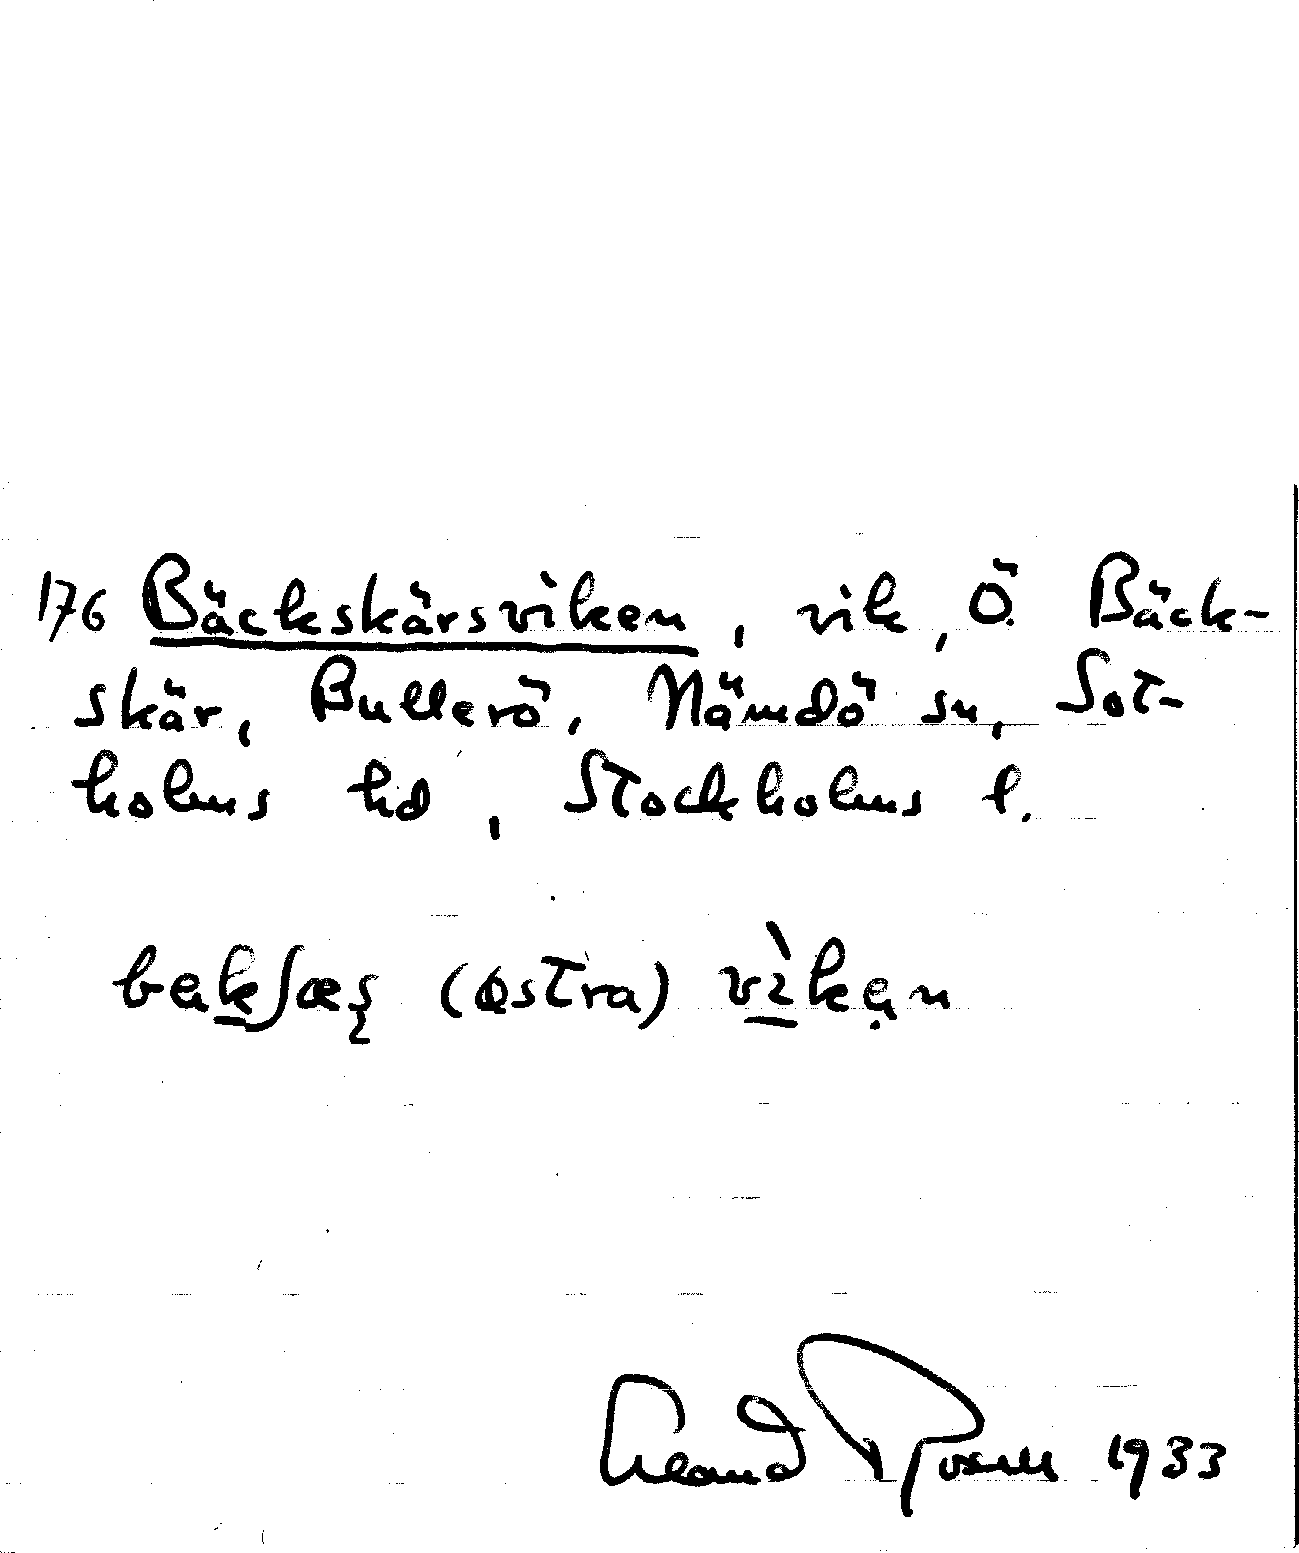 176 Bäckskärsviken, vik, Ö. Bäck-
skär, Bullerö, Nämdö sn, Sot-
holms hd, Stockholms l.
(østra)
1933